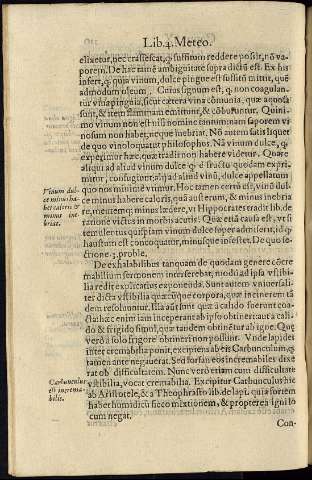 Lib. 4. Meteo.
elixetur, nec crassescat, q̃ suffitum reddere possit, nõ va-
porem. De hac tamẽ ambiguitate supra dictũ est. Ex his
infert, q, quia vinum, dulce pingue est suffitũ mittit, quẽ
admodum oleum. Cuius signum est, q non coagulan-
tur vina pinguia, sicut cætera vina cõmunia, quæ aquosa
sunt, & item flammam emittunt, & cõburuntur. Quini-
mo vinum non est nisi nomine tantum: nam saporem vi
nosum non habet, neque inebriat. Nõ autem satis liquet
de quo vino loquatur philosophus. Nã vinum dulce, q
experimur hæc, quæ tradit non habere videtur. Quare
aliqui ad aliud vinum dulce q è fructu quodam expri-
mitur, confugiunt, alij ad aliud vinũ, dulce appellatum
quo nos minimè vtimur. Hoc tamen certò est, vinũ dul-
ce minus habere caloris, quã austerum, & minus inebria
re, neutemq; minus lædere, vt Hippocrates tradit lib. de
ratione victus in morbis acutis. Quæ etiã causa est, vt si
temulentus quispiam vinum dulce super admisceat, id q
haustum est concoquatur, minusque infestet. De quo se-
ctione. 3. proble.
De exhalabilibus tanquam de quodam genere cõcre
mabilium sermonem interserebat, modò ad ipsa vstibi-
lia redit explicatius exponenda. Sunt autem vniuersali-
ter dicta vstibilia quæcũque corpora, quæ in cinerem tã
dem resoluuntur. Ista aũt sunt quæ à calido fuerunt coa-
cta: hæc enim iam inceperant ab ipso obtineri: aut à cali-
do & frigido simul, quæ tandem obtinẽtur ab igne. Quę
verò à solo frigore obtineri non possunt. Vnde lapides
inter cremabilia ponit, excipiens ab eis Carbunculum, q̃
tamen antè negauerat. Sed forsan eos incremabiles dixe
rat ob difficultatem. Nunc verò etiam cum difficultate
vstibilia, vocat cremabilia. Excipitur Carbunculus hic
ab Aristotele, & a Theophrasto lib. de lapi. quia fortem
habet humidũ sicco mixtionem, & propterea igni lo
cum negat.
Con-
Vinum dul-
ce minus ha
bet caloris &
minus ine
briat.
Carbunculus
est increma-
bilis.